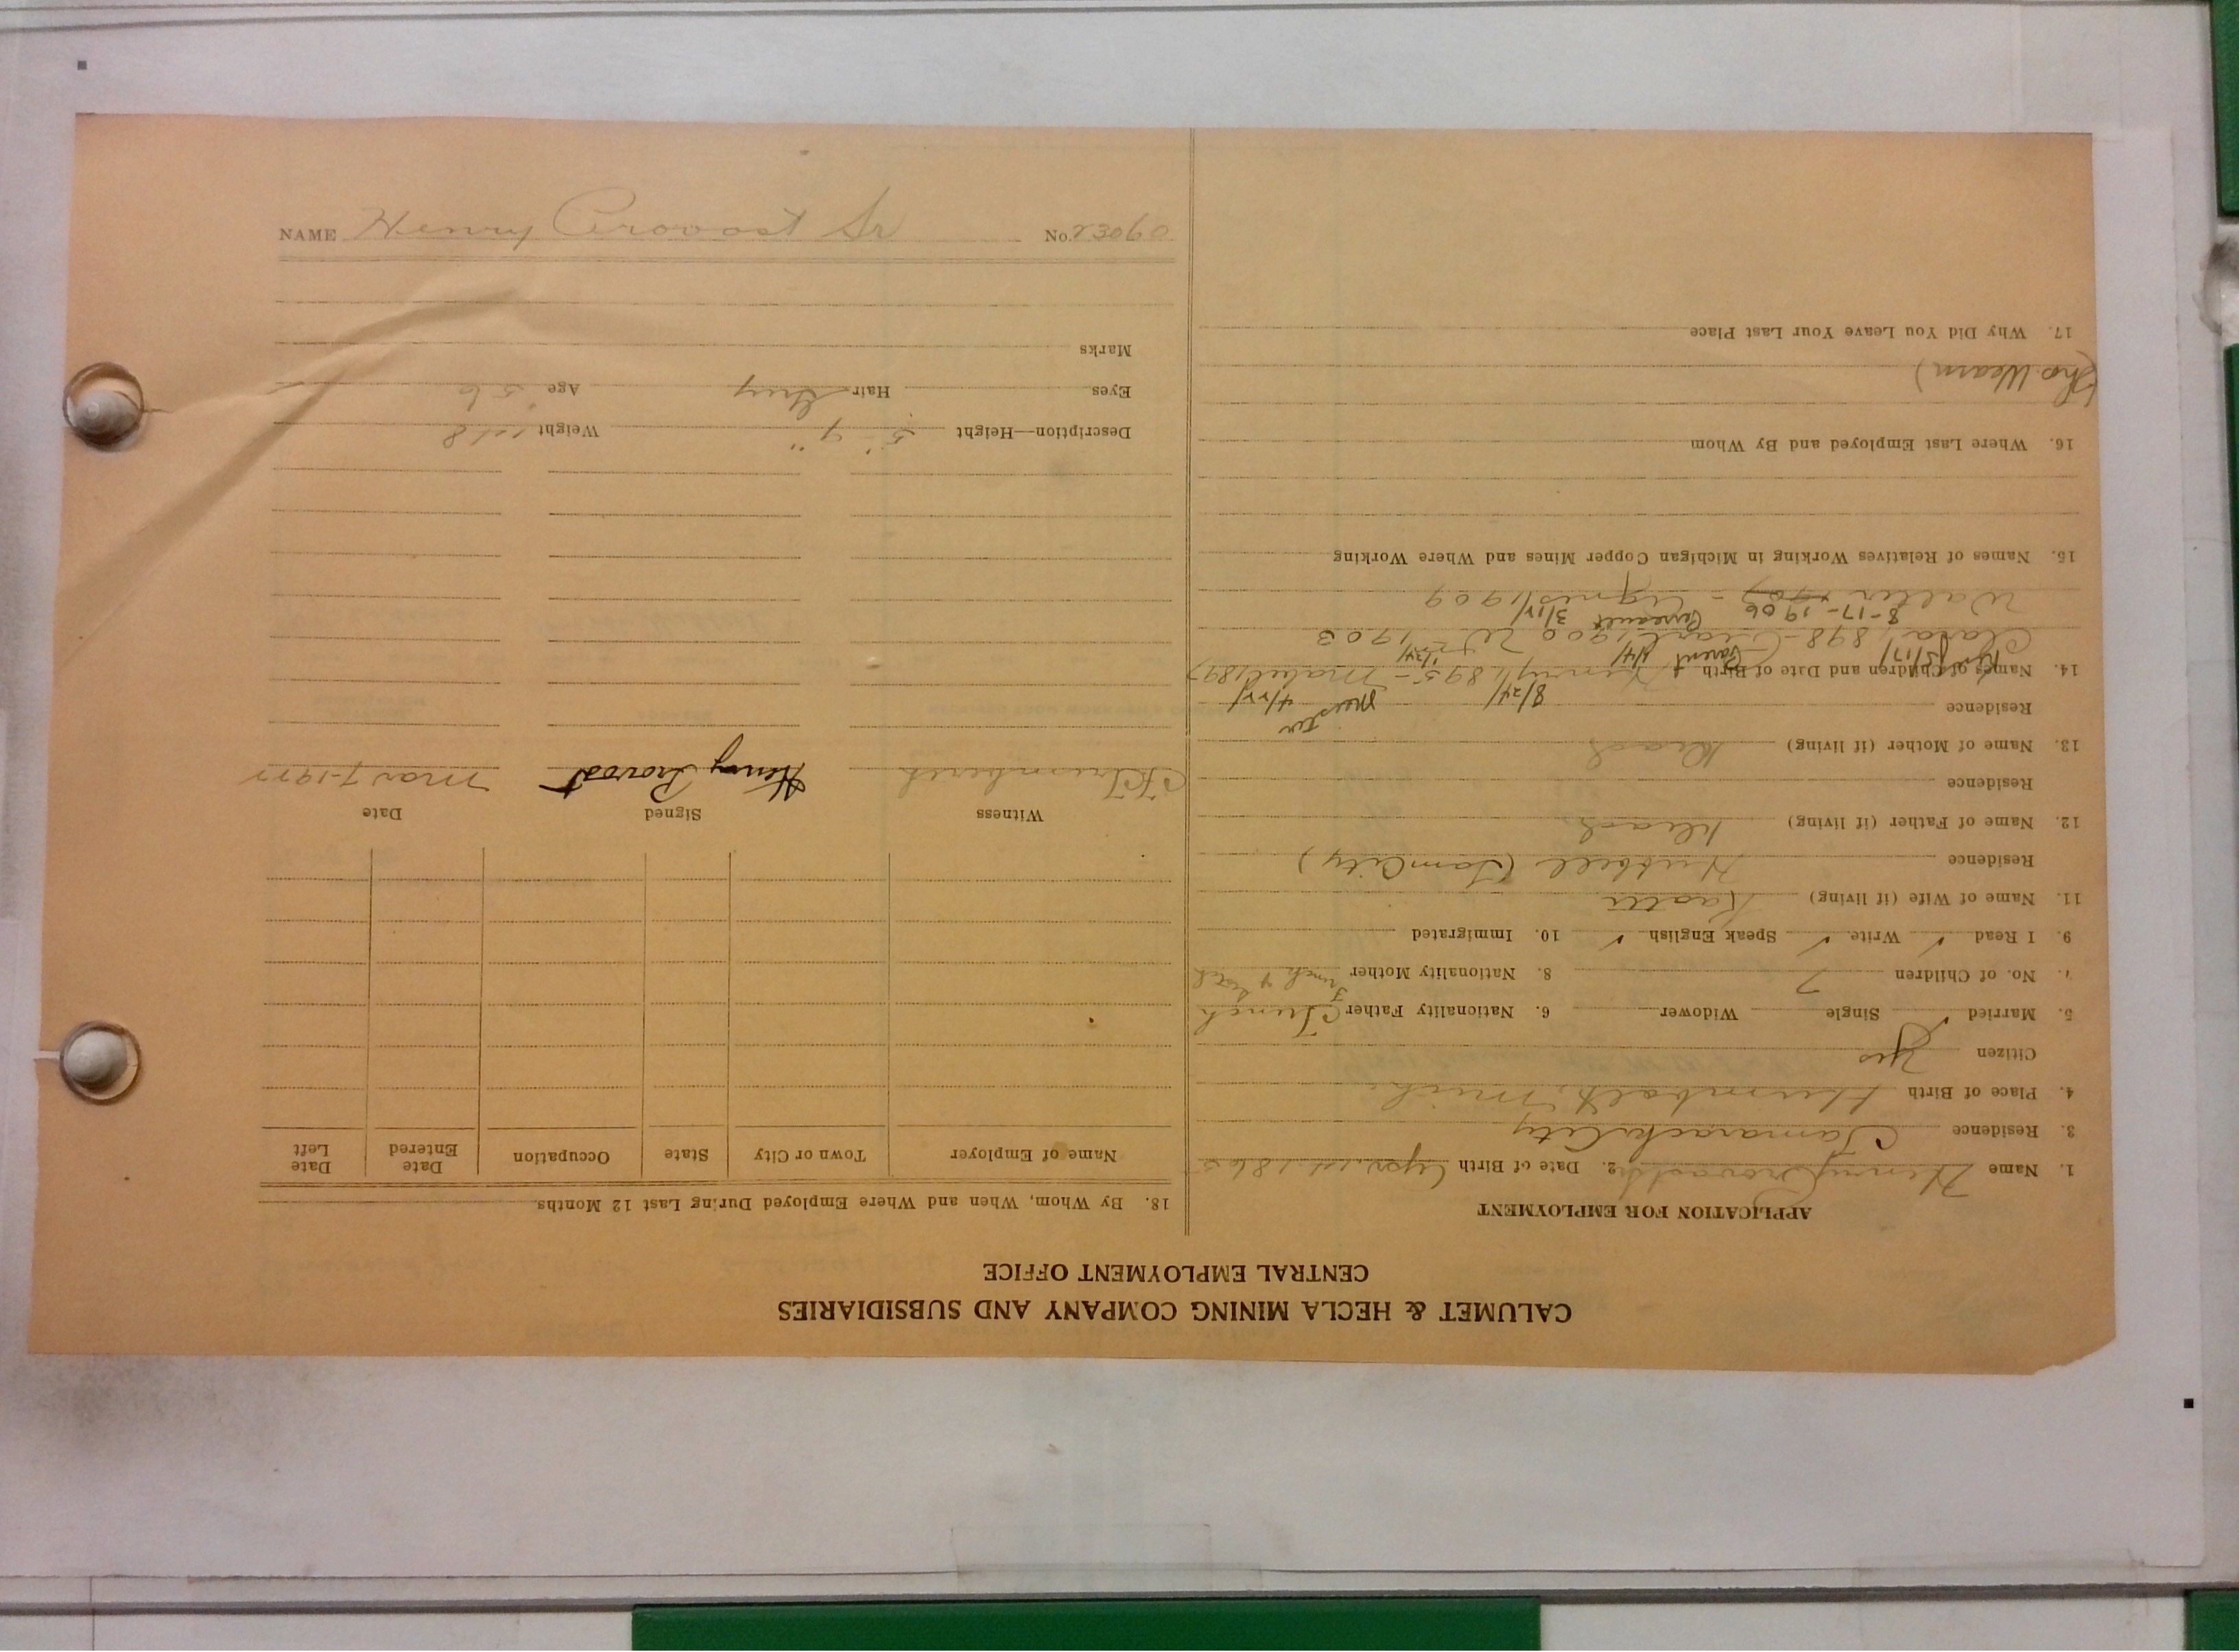 CALUMET & HECLA MINING COMPANY AND SUBSIDIARIES
CENTRAL EMPLOYMENT OFFICE
APPLICATION FOR EMPLOYMENT
1. Name Henry Provost Sr 2. Date of Birth Apr. 1st. 1865
3. Residence Tamarack City
4. Place of Birth Humbolt, Mich.
Citizen Yes
5. Married ✓ Single Widower 6. Nationality Father French
7. No. of Children 7 8. Nationality Mother French &
9. I Read ✓ Write ✓ Speak English ✓ 10. Immigrated
11. Name of Wife (if living)
Residence Hubbell (Tam City)
12. Name of Father (if living) Dead
Residence
13. Name of Mother (if living) Dead
Residence
8/24 4/22
14. Names of Children and Date of Birth Henry 1895 - Mabel 1897
5/17 Parent 4/4 1/24
Clara 1898 - 1900 1903
8-17-1906 3/12
Walter 1907 - Agnes 1909
15. Names of Relatives Working in Michigan Copper Mines and Where Working
16. Where Last Employed and By Whom
(Tho. Wearn)
17. Why Did You Leave Your Last Place
18. By Whom, When and Where Employed During Last 12 Months.
Name of Employer Town or City State Occupation Date Entered Date Left
Witness Signed Date
Henry Provost Mar 7-1922
Description—Height 5' 9" Weight 118
Eyes Hair Grey Age 56
Marks
NAME Henry Provost Sr No. 23060